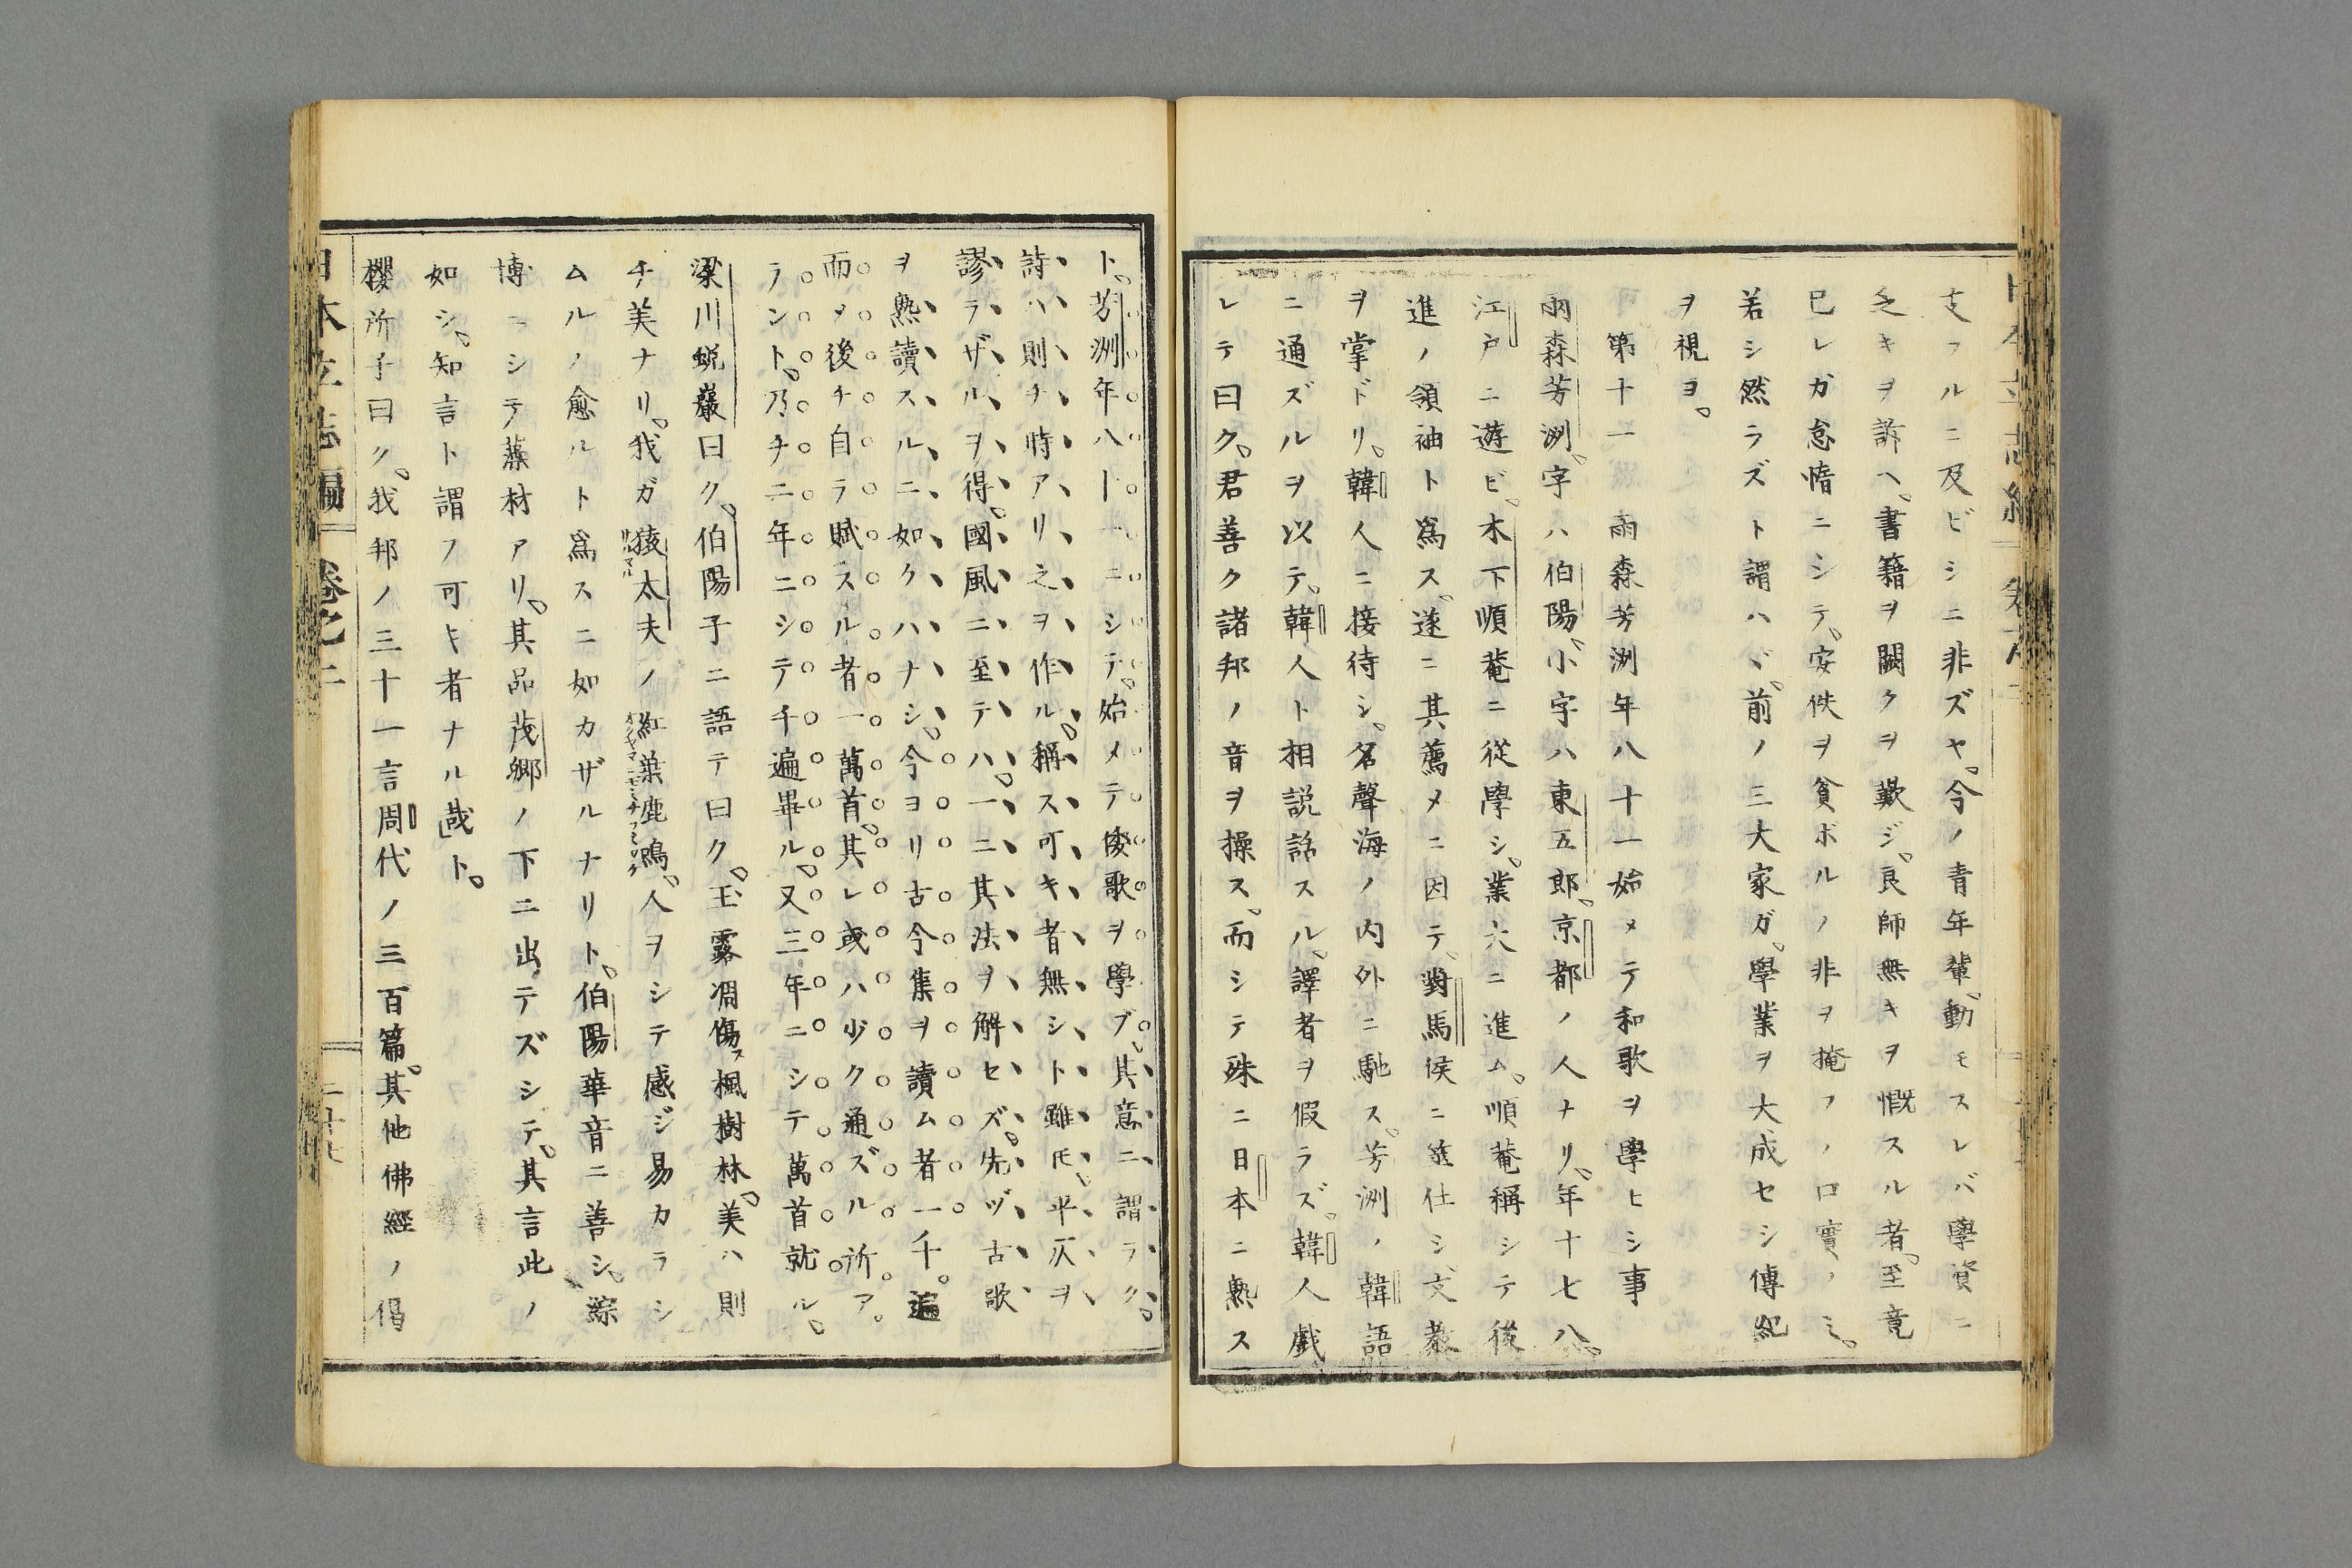 支フルニ及ビシニ非ズヤ。今ノ青年輩、動モスレバ學資ニ
乏キヲ訴ヘ、書籍ヲ闕クヲ歎ジ、良師無キヲ慨スル者、至竟
已レガ怠惰ニシテ、安佚ヲ貪ボルノ非ヲ掩フノ口實ノミ。
若シ然ラズト謂ハヾ、前ノ三大家ガ、學業ヲ大成セシ傳紀
ヲ視ヨ。
第十一 雨森芳洲年八十一始メテ和歌ヲ學ヒシ事
雨森芳洲、字ハ伯陽、小字ハ東五郎、京都ノ人ナリ、年十七八、
江戸ニ遊ビ、木下順菴ニ從學シ、業大ニ進ム、順菴稱シテ後
進ノ領袖ト爲ス、遂ニ其薦メニ因テ、對馬侯ニ筮仕シ、文教
ヲ掌ドリ、韓人ニ接待シ、名聲海ノ内外ニ馳ス、芳洲ノ韓語
ニ通ズルヲ以テ、韓人ト相説話スル、譯者ヲ假ラズ、韓人戲
レテ曰ク、君善ク諸邦ノ音ヲ操ス、而シテ殊ニ日本ニ熟ス
ト、芳洲年八十一ニシテ、始メテ倭歌ヲ學ブ、其意ニ謂ラク、
詩ハ則チ時アリ之ヲ作ル、稱ス可キ者無シト雖モ、平仄ヲ
謬ラザルヲ得、國風ニ至テハ、一ニ其法ヲ解セズ、先ヅ古歌
ヲ熟讀スルニ如クハナシ、今ヨリ古今集ヲ讀ム者一千遍
而メ後チ自ラ賦スル者一萬首、其レ或ハ少ク通ズル所ア
ラント、乃チ二年ニシテ千遍畢ル、又三年ニシテ萬首就ル、
梁川蛻巖曰ク、伯陽子ニ語テ曰ク、玉露凋傷ス楓樹林、美ハ則
チ美ナリ、我ガ猿太夫ノ紅葉鹿鳴、人ヲシテ感ジ易カラシ
ムルノ愈ルト爲スニ如カザルナリト、伯陽華音ニ善シ、綜
博ニシテ藻材アリ、其品茂卿ノ下ニ出テズシテ、其言此ノ
如シ、知言ト謂フ可キ者ナル哉ト。
櫻所子曰ク、我邦ノ三十一言周代ノ三百篇、其他佛經ノ偈
日本立志編 卷之二 二十七